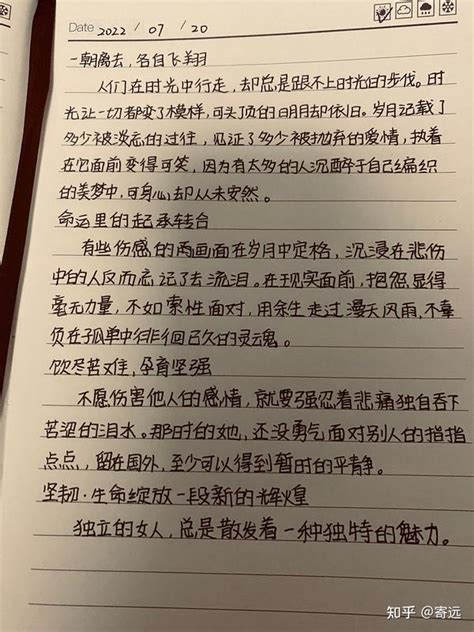 Date 2022 / 07 / 20
一朝离去，各自飞翔
人们在时光中行走，却总是跟不上时光的步伐。时
光让一切都变了模样，可头顶的明月却依旧。岁月记载了
多少被淡忘的过往，见证了多少被抛弃的爱情，执着
在它面前变得可笑，因为有太多的人沉醉于自己编织
的美梦中，可身心却从未安然。
命运里的起承转合
有些伤感的画面在岁月中定格，沉浸在悲伤
中的人反而忘记了去流泪。在现实面前，抱怨显得
毫无力量，不如索性面对，用余生走过漫天风雨，不辜
负在孤单中徘徊已久的灵魂。
饮尽苦难，孕育坚强
不愿伤害他人的感情，就要强忍着悲痛独自吞下
苦涩的泪水。那时的她，还没勇气面对别人的指指
点点，留在国外，至少可以得到暂时的平静。
坚韧·生命绽放一段新的辉煌
独立的女人，总是散发着一种独特的魅力。
知乎 @寄远